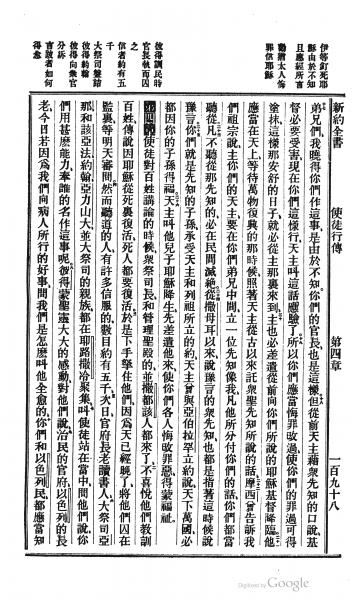 新約全書 使徒行傳 第四章 一百九十八
伊等釘死耶
穌由於不知
且應經所言
勸猶太人悔
罪信耶穌
弟兄們、我曉得你們作這事、是由於不知、你們的官長也是這樣、但從前天主藉衆先知的口、說基
督必要受害、現在你們這樣行、天主叫這話應驗了、所以你們應當悔罪改過、使你們的罪過可得
塗抹、這樣那安舒的日子、就必從主那裏來到、主也必差遣從前向你們所說的耶穌基督降臨、他
應當在天上、等待萬物復興的那時候、照著天主從古以來、託衆聖先知所說的話、摩西曾告訴我
們祖宗說、主你們的天主、要在你們弟兄中間立一位先知像我、凡他所分付你們的話、你們都當
聽從、凡不聽從那先知的、必在民間滅絶、從撒母耳以來、說豫言的衆先知、也都是指著這時候說
豫言、你們就是先知的子孫、承受天主和列祖所立的約、天主曾與亞伯拉罕立約說、天下萬國必
都因你的子孫得福、天主叫他兒子耶穌降生、先差遣他來、使你們各人悔改罪惡、得蒙福祉、
彼得訓民時
官長執而囚
之
信者約有五
千
大祭司鞫詰
彼得約翰
彼得向衆官
分訴
言該者如何
得愈
第四章 使徒對百姓講論的時候、衆祭司長和管理聖殿的官、撒都該人都來了、不喜悅他們教訓
百姓、傳說因耶穌從死裏復活、死人都要復活、於是下手拿住他們、因爲天已經晚了、將他們囚在
監裏、等明天審問、然而聽道的人、有許多信服的、數目約有五千、次日官府長老讀書人、大祭司亞
那和該亞法、約翰亞力山大、並大祭司的親族、都在耶路撒冷聚集、叫使徒站在當中、間他們說、你
們用甚麽能力、奉誰的名作這事呢、彼得蒙聖靈大大的感動、對他們說、治民的官府、以色列的長
老、今日若因爲我們向病人所行的好事、問我們是怎麽叫他全愈的、你們和以色列民、都應當知
Digitized by Google